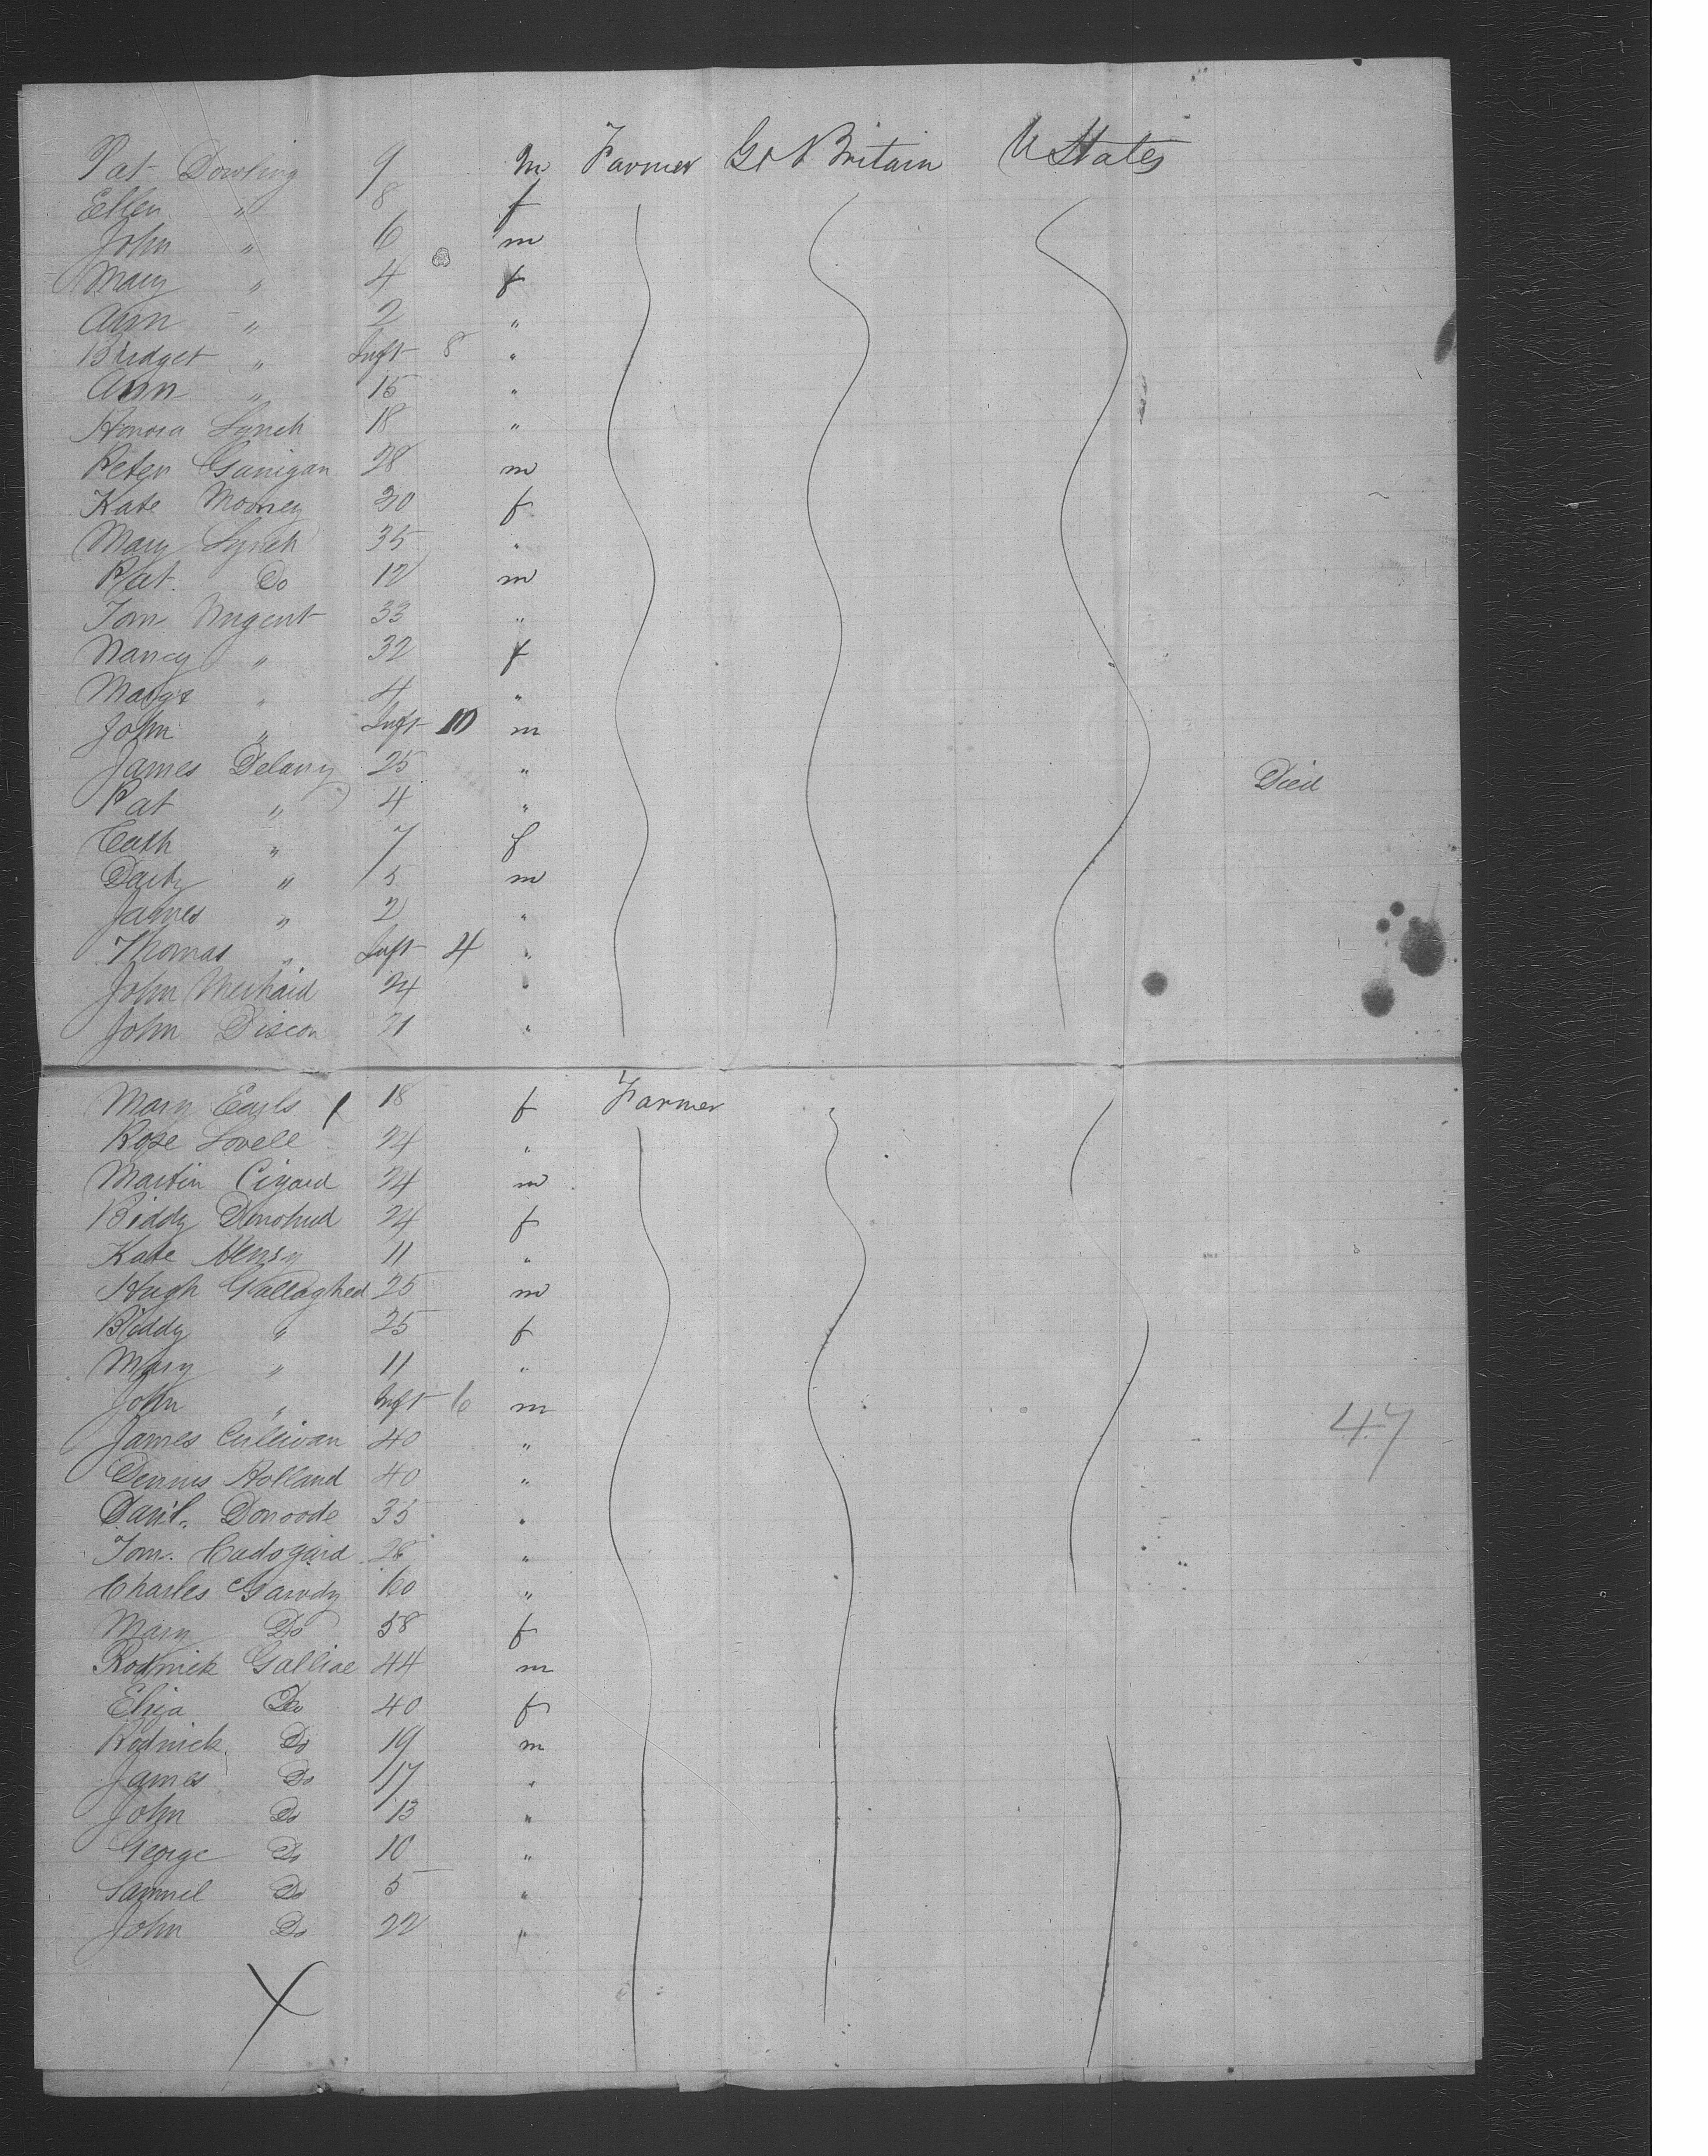 Pat Dowling 9 m Farmer Gt Britain U States
Ellen " 8 f
John " 6 m
Mary " 4 f
Ann " 2 "
Bridget " Inft 8 "
Ann " 15 "
Honora Lynch 18 "
Peter Ganigan 28 m
Kate Mooney 30 f
Mary Lynch 35 "
Pat. Do 12 m
Tom Nugent 33 "
Nancy " 32 f
Margt " 4 "
John " Inft 10 m
James Delany 25 " Died
Pat " 4 "
Cath " 7 f
Darby " 5 m
James " 2 "
Thomas " Inft 4 "
John 24 "
John Discon 21 "
Mary Earls 18 f Farmer
Rose Lovell 24 "
Martin 24 m
Biddy Donohud 24 f
Kate Henry 11 "
Hugh Gallaghed 25 m
Biddy " 25 f
Mary " 11 "
John " Inft 6 m
James Cullivan 40 " 47
Dennis Holland 40 "
Danl. Donoode 35 "
Tom. 28 "
Charles 60 "
Mary Do 58 f
Rodrick Galliae 44 m
Eliza Do 40 f
Rodrick Do 19 m
James Do 17 "
John Do 13 "
George Do 10 "
Samuel Do 5 "
John Do 22 "
X